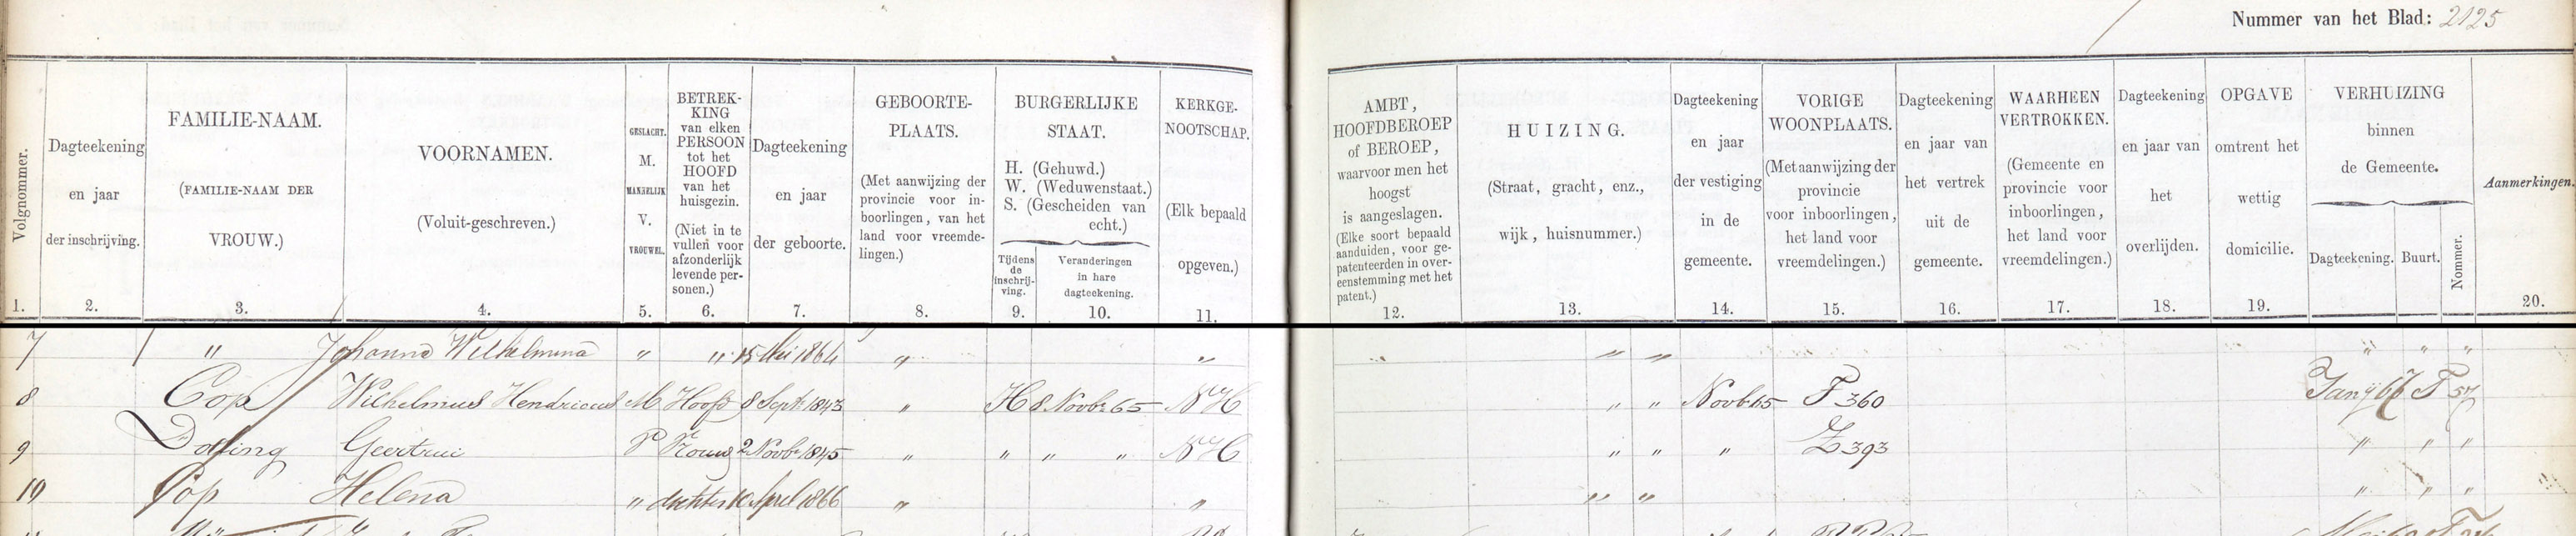 Nummer van het Blad: 2125
Volgnommer.
1.
Dagteekening
en jaar
der inschrijving.
2.
FAMILIE-NAAM.
(FAMILIE-NAAM DER
VROUW.)
3.
VOORNAMEN.
(Voluit-geschreven.)
4.
GESLACHT.
M.
MANNELIJK
V.
VROUWEL.
5.
BETREK-
KING
van elken
PERSOON
tot het
HOOFD
van het
huisgezin.
(Niet in te
vullen voor
afzonderlijk
levende per-
sonen.)
6.
Dagteekening
en jaar
der geboorte.
7.
GEBOORTE-
PLAATS.
(Met aanwijzing der
provincie voor in-
boorlingen, van het
land voor vreemde-
lingen.)
8.
BURGERLIJKE
STAAT.
H. (Gehuwd.)
W. (Weduwenstaat.)
S. (Gescheiden van
echt.)
Tijdens
de
inschrij-
ving.
9.
Veranderingen
in hare
dagteekening.
10.
KERKGE-
NOOTSCHAP.
(Elk bepaald
opgeven.)
11.
AMBT,
HOOFDBEROEP
of BEROEP,
waarvoor men het
hoogst
is aangeslagen.
(Elke soort bepaald
aanduiden, voor ge-
patenteerden in over-
eenstemming met het
patent.)
12.
HUIZING.
(Straat, gracht, enz.,
wijk, huisnummer.)
13.
Dagteekening
en jaar
der vestiging
in de
gemeente.
14.
VORIGE
WOONPLAATS.
(Met aanwijzing der
provincie
voor inboorlingen,
het land voor
vreemdelingen.)
15.
Dagteekening
en jaar van
het vertrek
uit de
gemeente.
16.
WAARHEEN
VERTROKKEN.
(Gemeente en
provincie voor
inboorlingen,
het land voor
vreemdelingen.)
17.
Dagteekening
en jaar van
het
overlijden.
18.
OPGAVE
omtrent het
wettig
domicilie.
19.
VERHUIZING
binnen
de Gemeente.
Dagteekening. Buurt. Nommer.
Aanmerkingen.
20.
7 " Johanna Wilhelmina " " 15 Mei 1864 " " " " " " "
8 Cop Wilhelmus Hendricus M Hoofd 8 Sept 1843 " H 8 Novbr 65 NH " " Novb 65 F 360 Janij 67 F
9 Dolling Geertrui V Vrouw 2 Novbr 1845 " " " " NH " " " Z 393 " " "
10 Cop Helena " dochter 10 April 1866 " " " " " " "